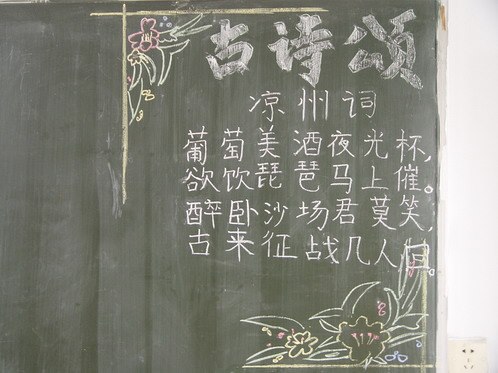 古诗颂
凉州词
葡萄美酒夜光杯,
欲饮琵琶马上催。
醉卧沙场君莫笑,
古来征战几人回。